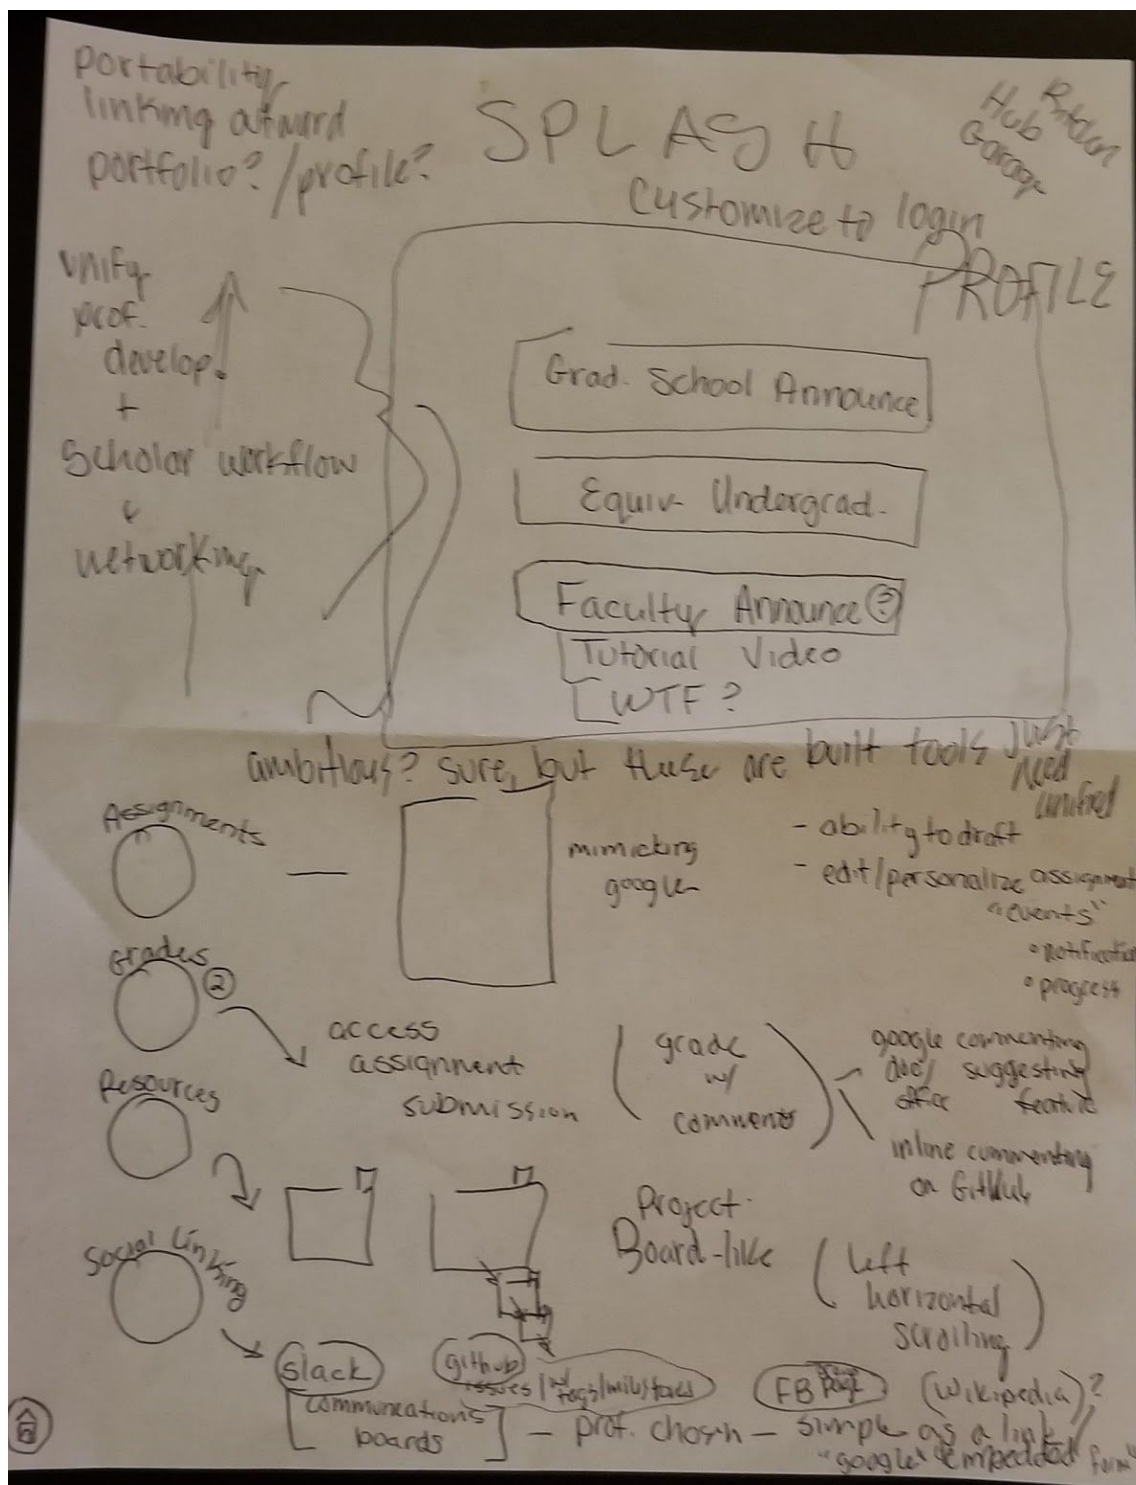 portability
linking outward
portfolio? / profile?
SPLASH
Hub
Garage
customize to login
PROFILE
unify
prof.
develop.
+
scholar workflow
&
networking
Grad. School Announce
Equiv. Undergrad.
Faculty Announce ?
Tutorial Video
WTF?
ambitious? sure, but these are built tools just
need
unified
Assignments
mimicking
google
- ability to draft
- edit/personalize assignment
"events"
• notification
• progress
Grades
2
access
assignment
submission
(grade
w/
comments)
google commenting
doc/ suggesting
office feature
inline commenting
on GitHub
Resources
Project-
Board-like
(left
horizontal
scrolling)
Social Linking
slack
github
issues/w/ tags/milestones
FB page
(Wikipedia)?
[communications
boards]
- prof. chosen - simple as a link/
"google" embedded form"